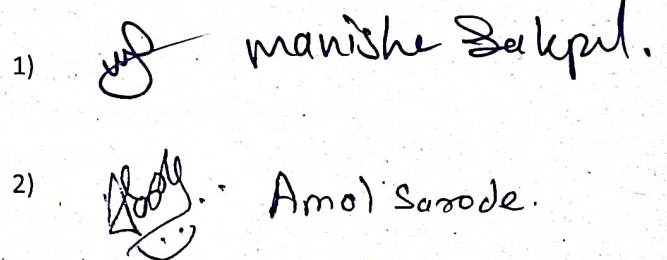 1) manisha Sakpal.
2) Amol Sarode.